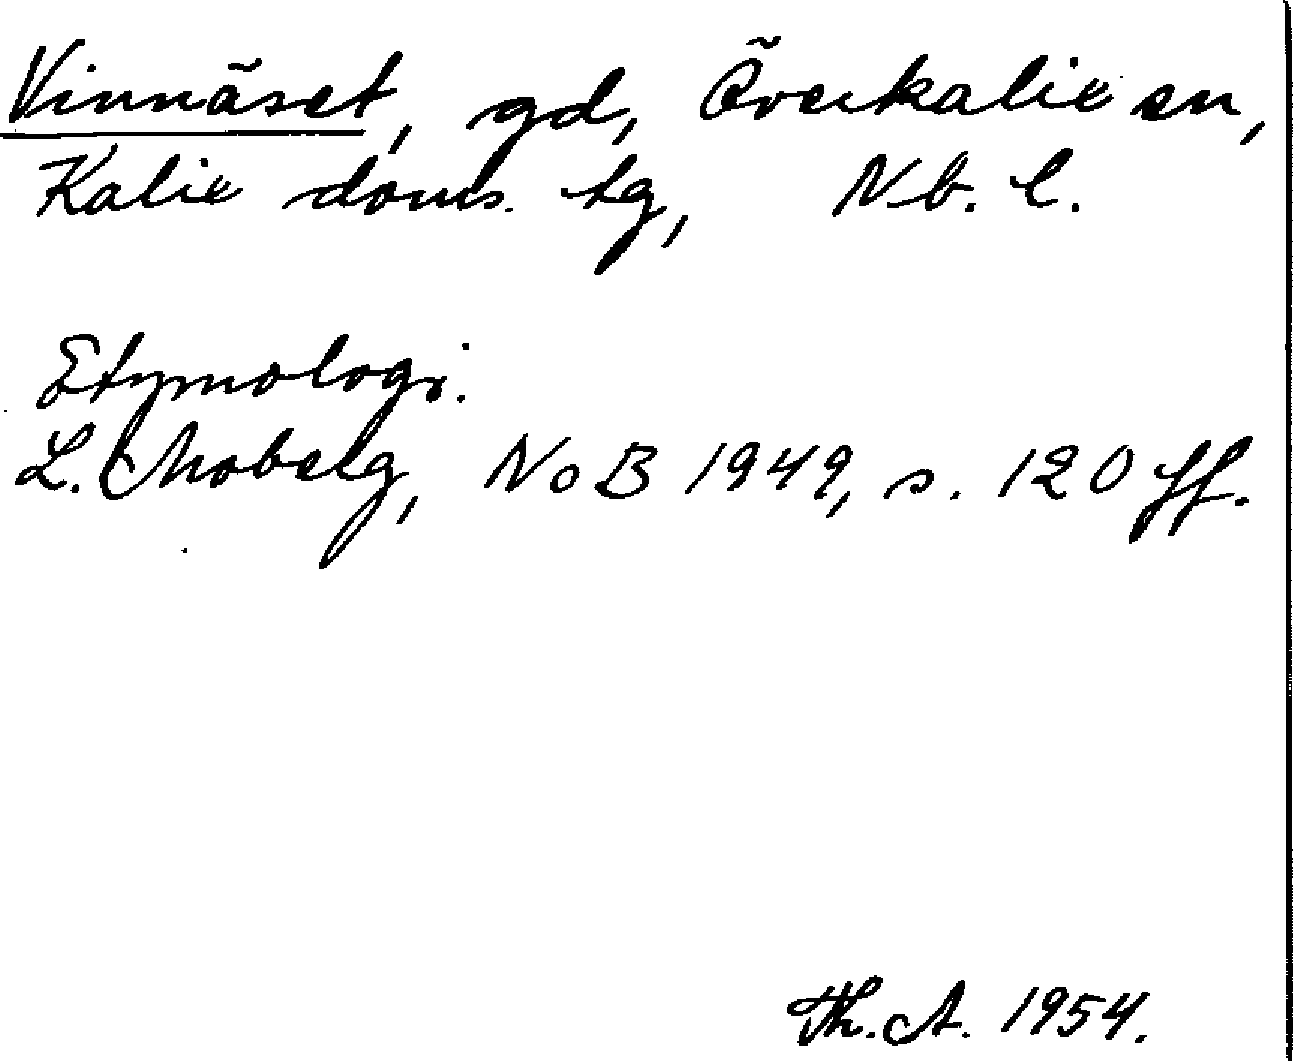 Vinnäset, gd, Överkalix sn,
Kalix doms. tg, Nb. l.
Etymologi:
L. Moberg, NoB 1949, s. 120 ff.
Th. A. 1954.